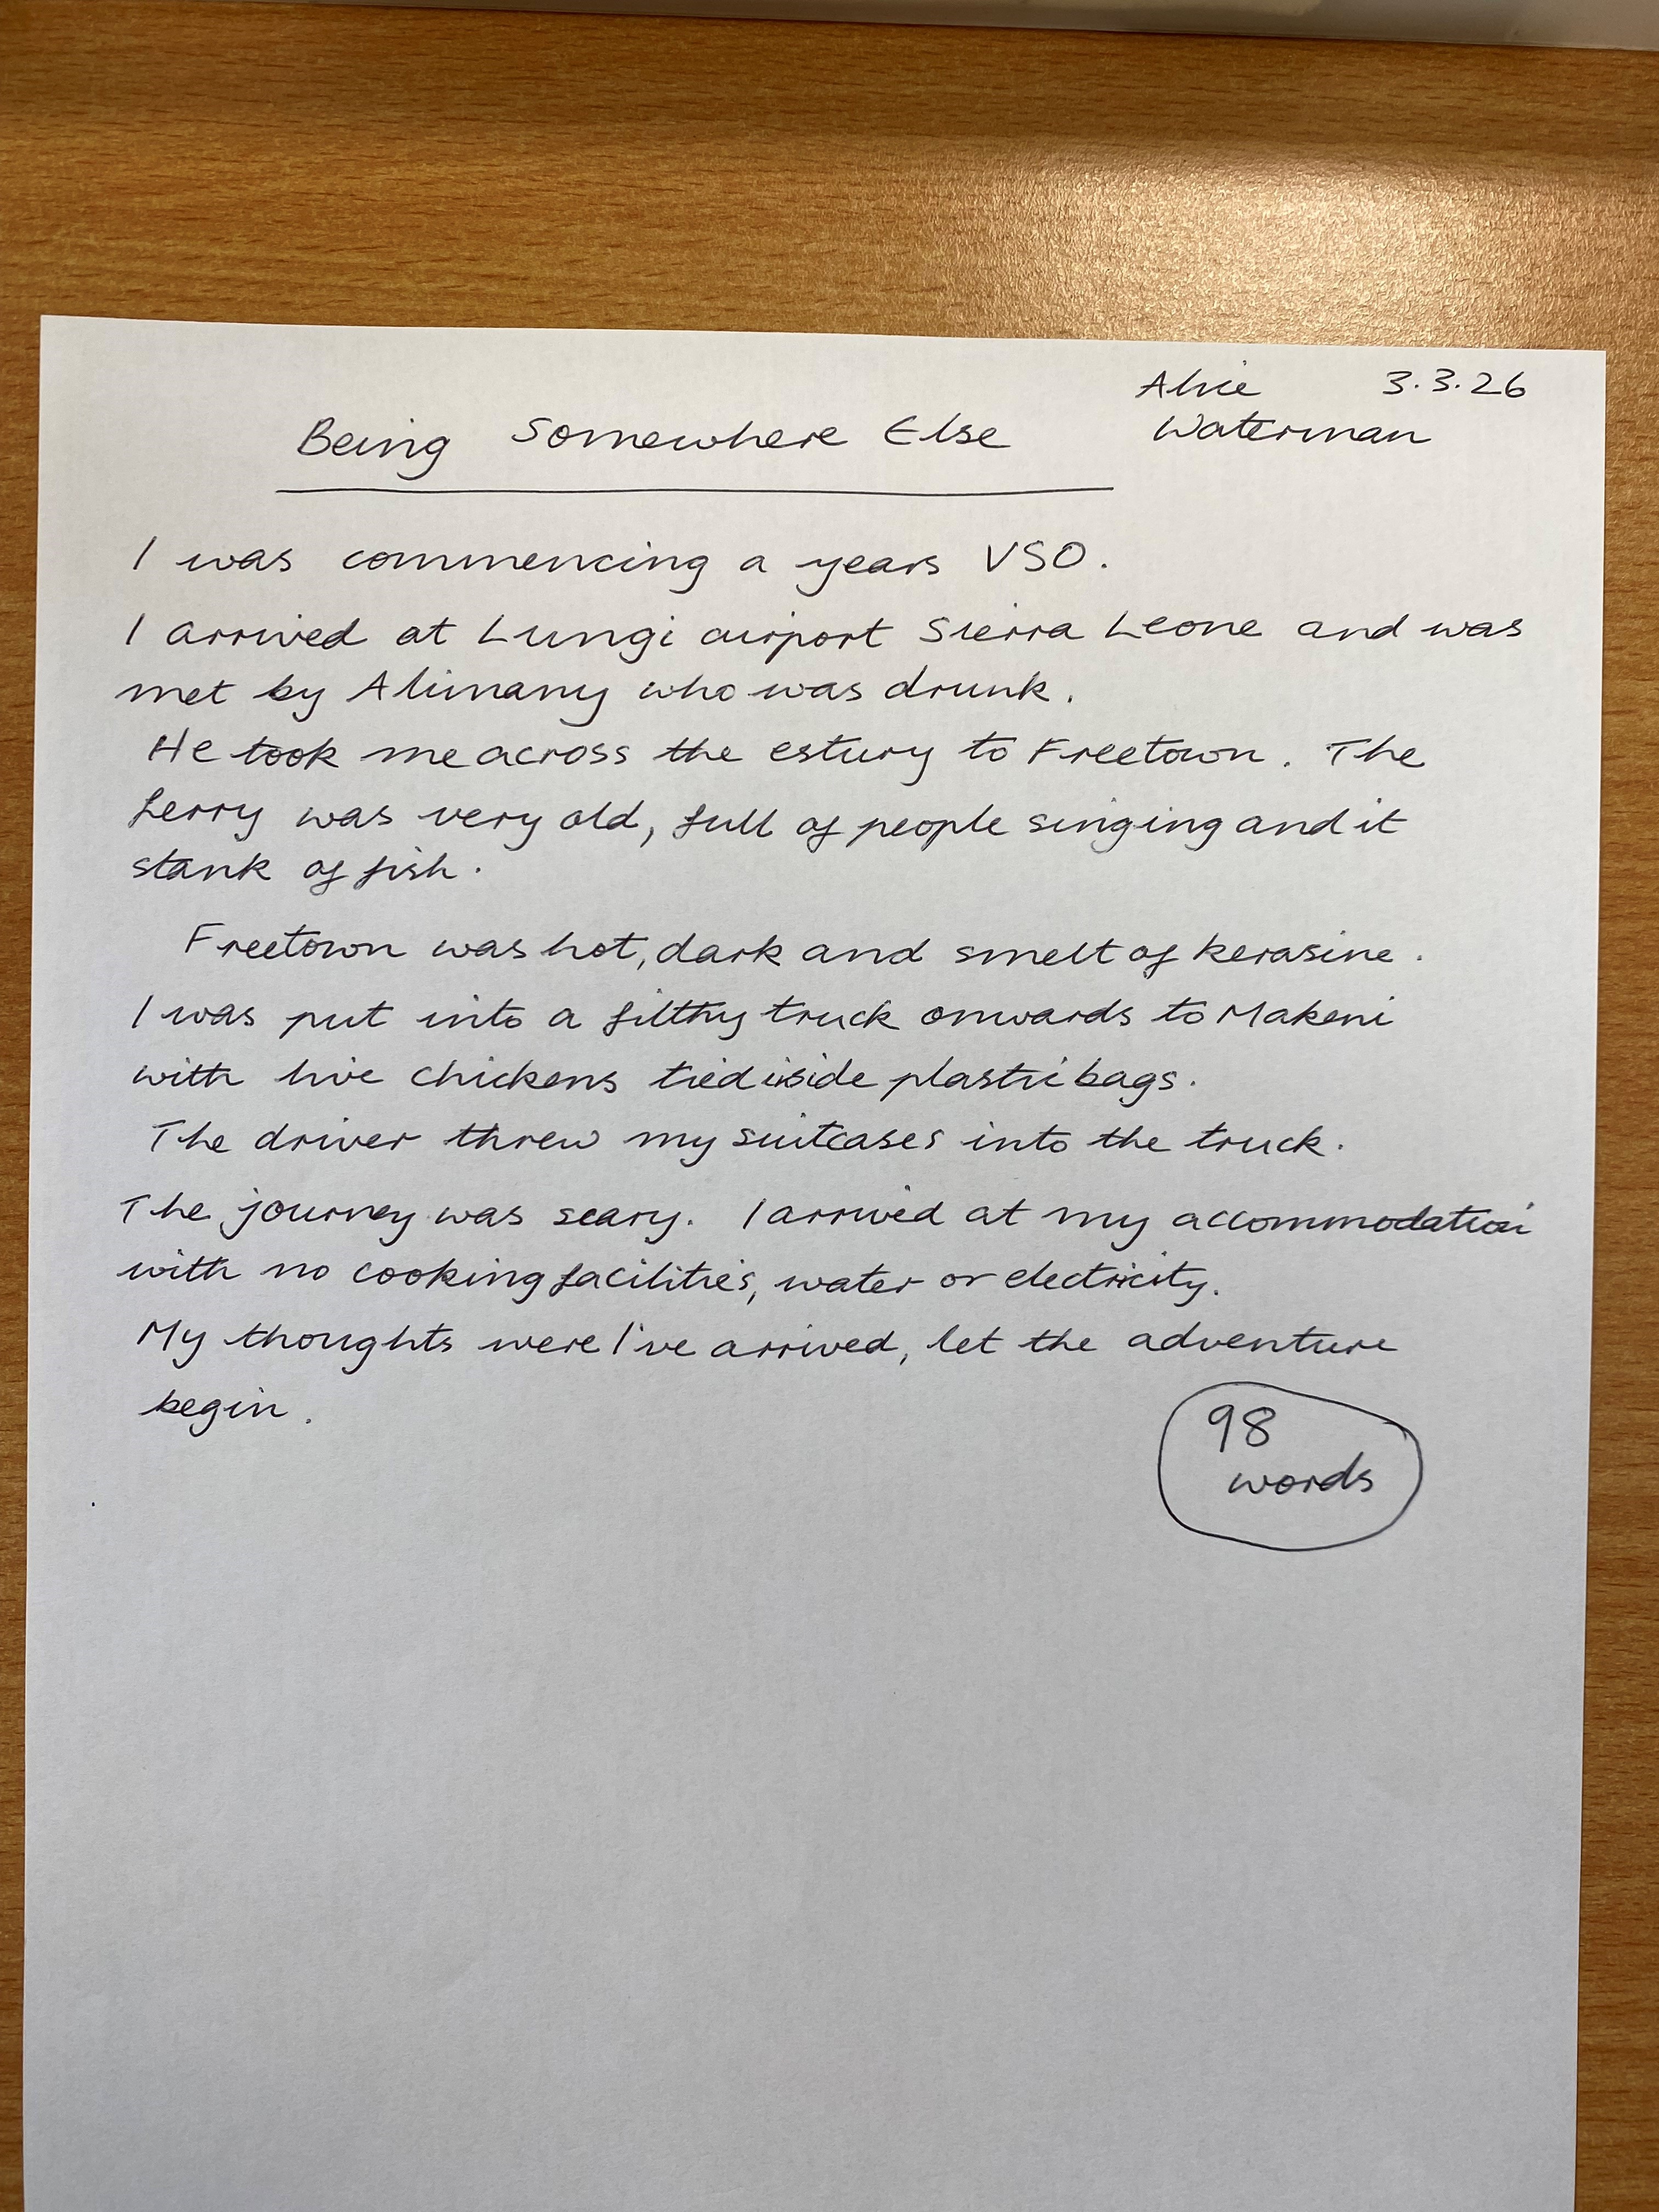 Alice 3.3.26
Being Somewhere Else Waterman
I was commencing a years VSO.
I arrived at Lungi airport Sierra Leone and was
met by Alimany who was drunk.
He took me across the estury to Freetown. The
ferry was very old, full of people singing and it
stank of fish.
Freetown was hot, dark and smelt of kerasine.
I was put into a filthy truck onwards to Makeni
with live chickens tied inside plastic bags.
The driver threw my suitcases into the truck.
The journey was scary. I arrived at my accommodation
with no cooking facilities, water or electricity.
My thoughts were I've arrived, let the adventure
begin.
98
words